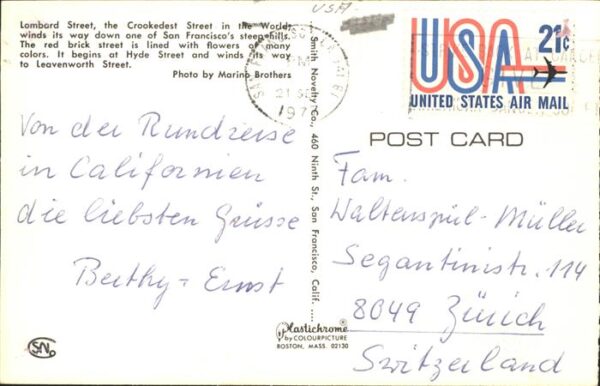 Lombard Street, the Crookedest Street in the World,
winds its way down one of San Francisco's steep hills.
The red brick street is lined with flowers of many
colors. It begins at Hyde Street and winds its way
to Leavenworth Street.
Photo by Marino Brothers
Von der Rundreise
in Californien
die liebsten Grüsse
Berthy - Ernst
SN
Smith Novelty Co., 460 Ninth St., San Francisco, Calif.
Plastichrome®
by COLOURPICTURE
BOSTON, MASS. 02130
USA
PM
21
197
USA 21c
UNITED STATES AIR MAIL
POST CARD
Fam.
Waltenspül-Müller
Segantinistr. 114
8049 Zürich
Switzerland